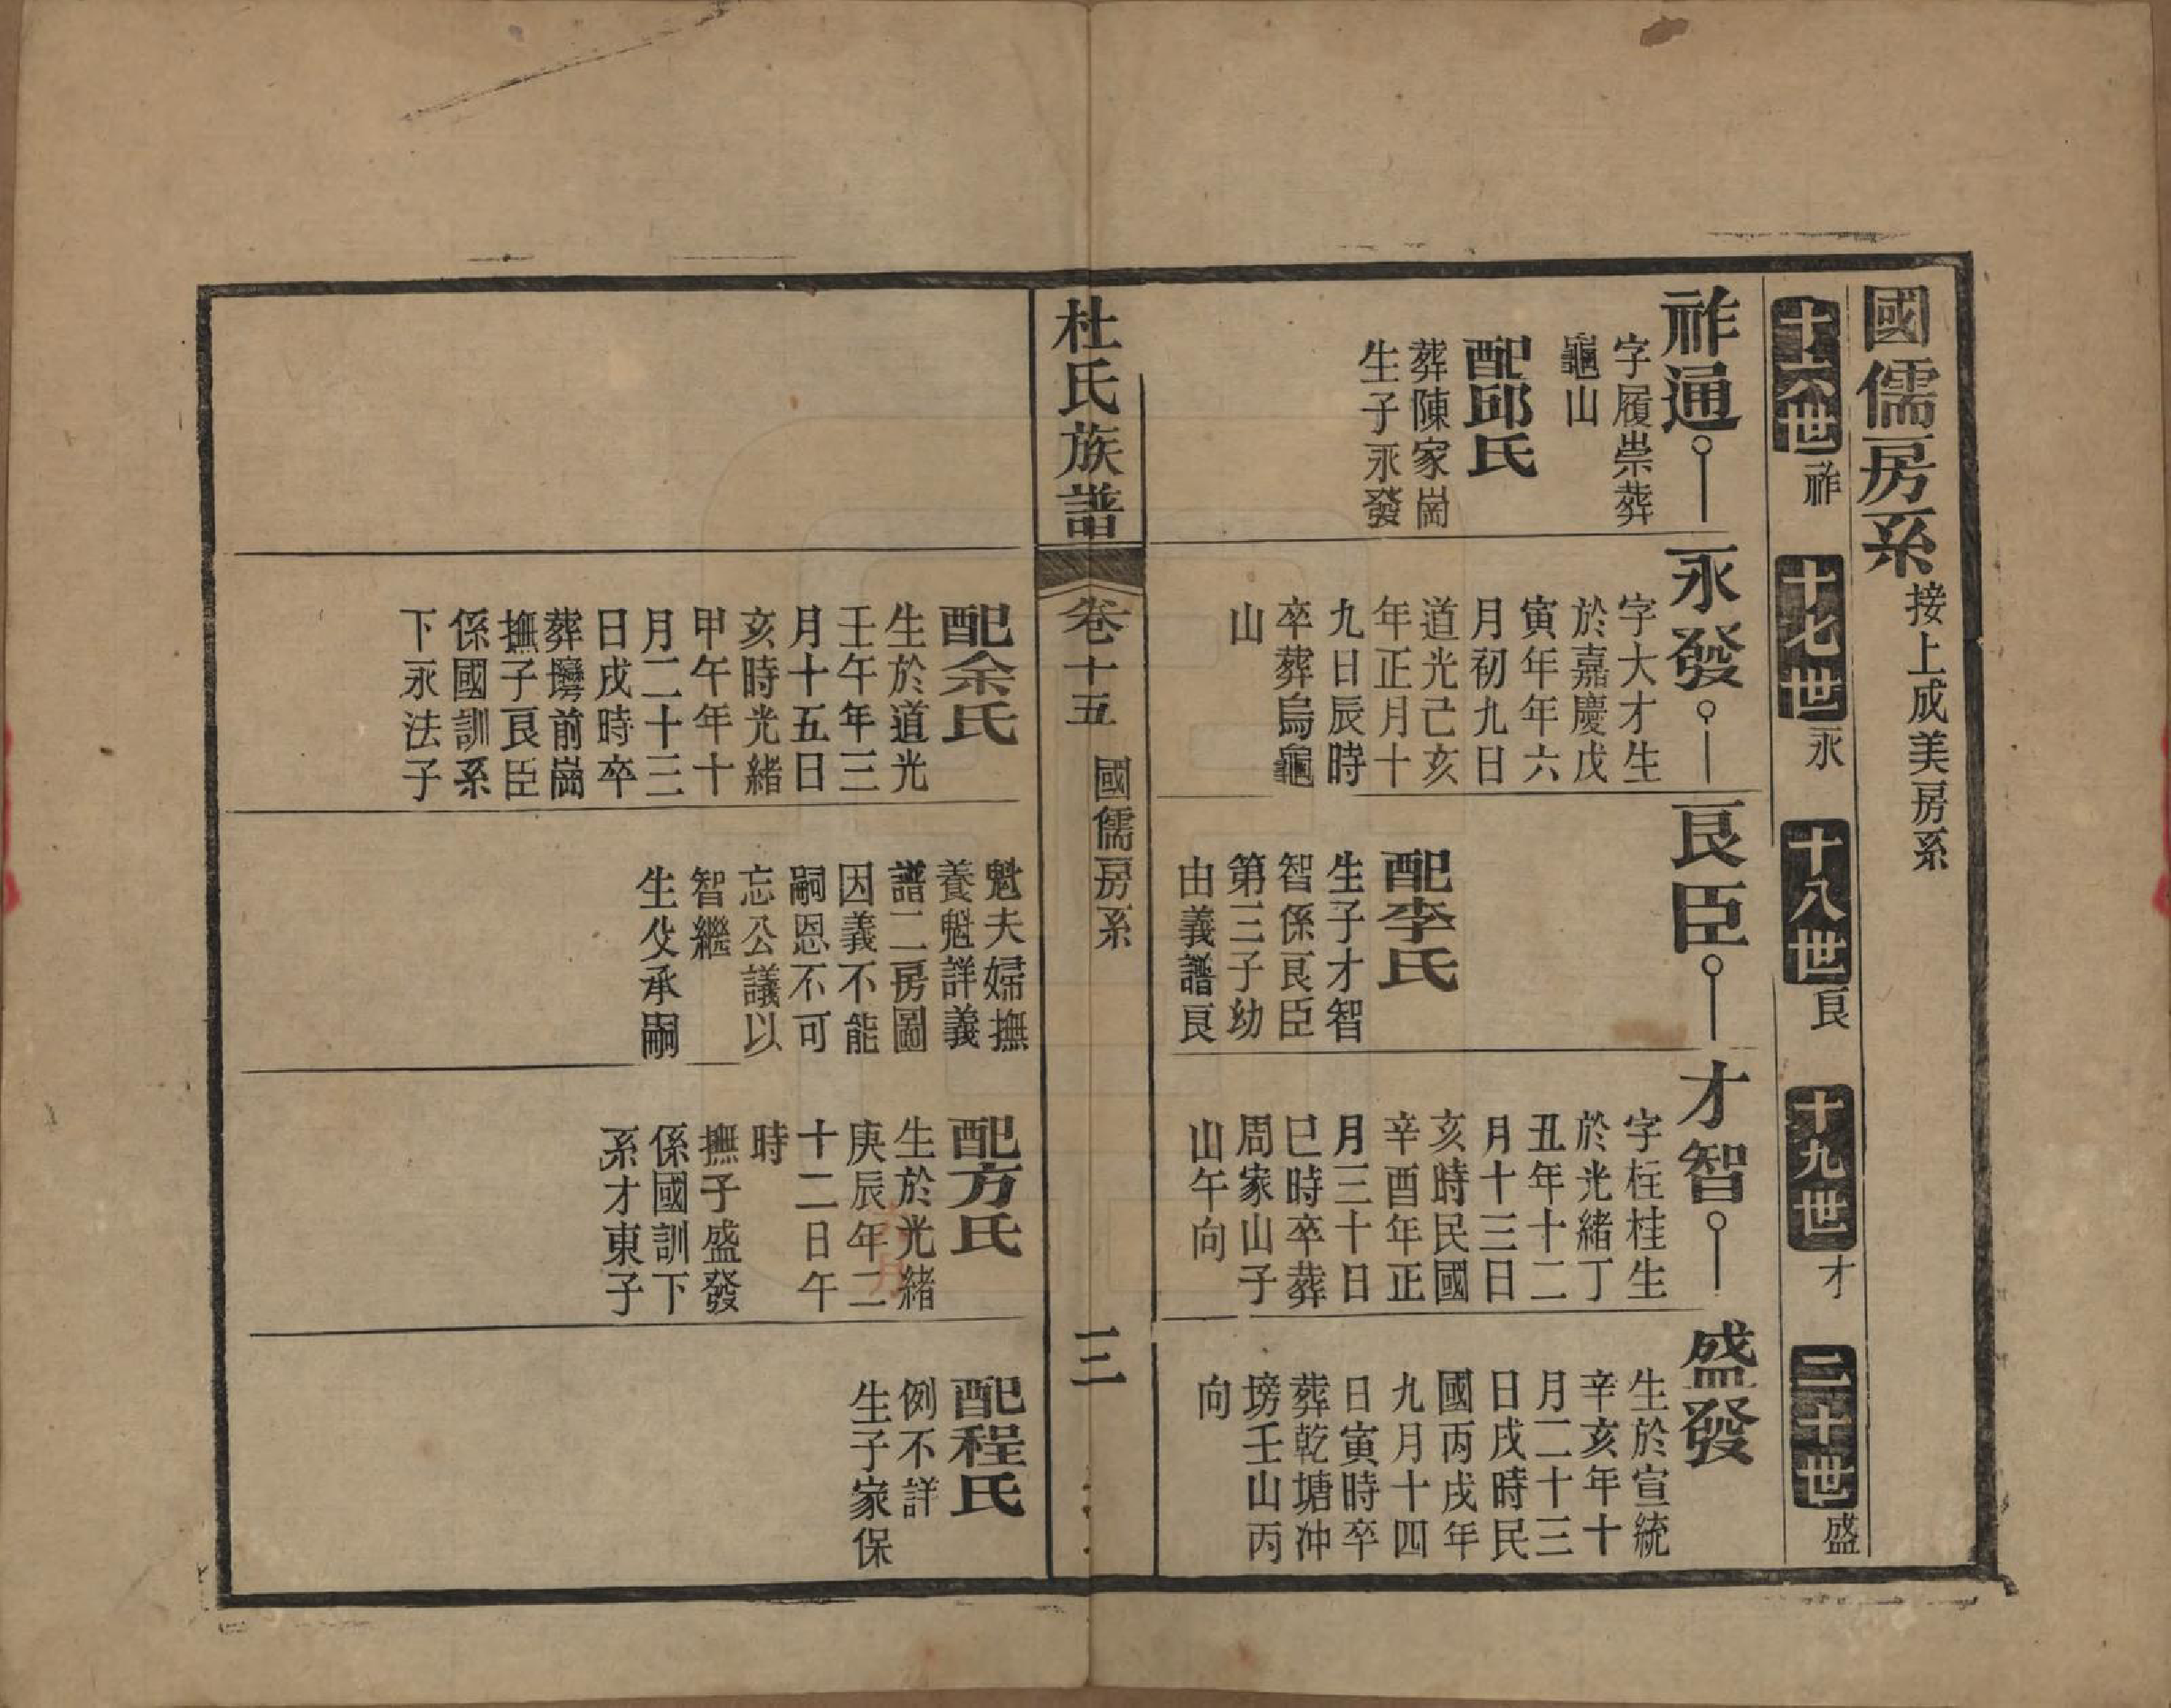 國儒房系接上成美房系
十六世祚
十七世永
十八世良
十九世才
二十世盛
祚通
字履崇葬
龜山
配邱氏
葬陳家崗
生子永發
永發
字大才生
於嘉慶戊
寅年年六
月初九日
道光己亥
年正月十
九日辰時
卒葬烏龜
山
良臣
配李氏
生子才智
智係良臣
第三子幼
由義譜良
才智
字枉桂生
於光緒丁
丑年十二
月十三日
亥時民國
辛酉年正
月三十日
巳時卒葬
周家山子
山午向
盛發
生於宣統
辛亥年十
月二十三
日戌時民
國丙戌年
九月十四
日寅時卒
葬乾塘冲
塝壬山丙
向
杜氏族譜
卷十五
國儒房系
三
配余氏
生於道光
壬午年三
月十五日
亥時光緒
甲午年十
月二十三
日戌時卒
葬塆前崗
撫子良臣
係國訓系
下永法子
魁夫婦撫
養魁詳義
譜二房圖
因義不能
嗣恩不可
忘公議以
智繼
生父承嗣
配方氏
生於光緒
庚辰年二
十二日午
時
撫子盛發
係國訓下
系才東子
配程氏
例不詳
生子家保